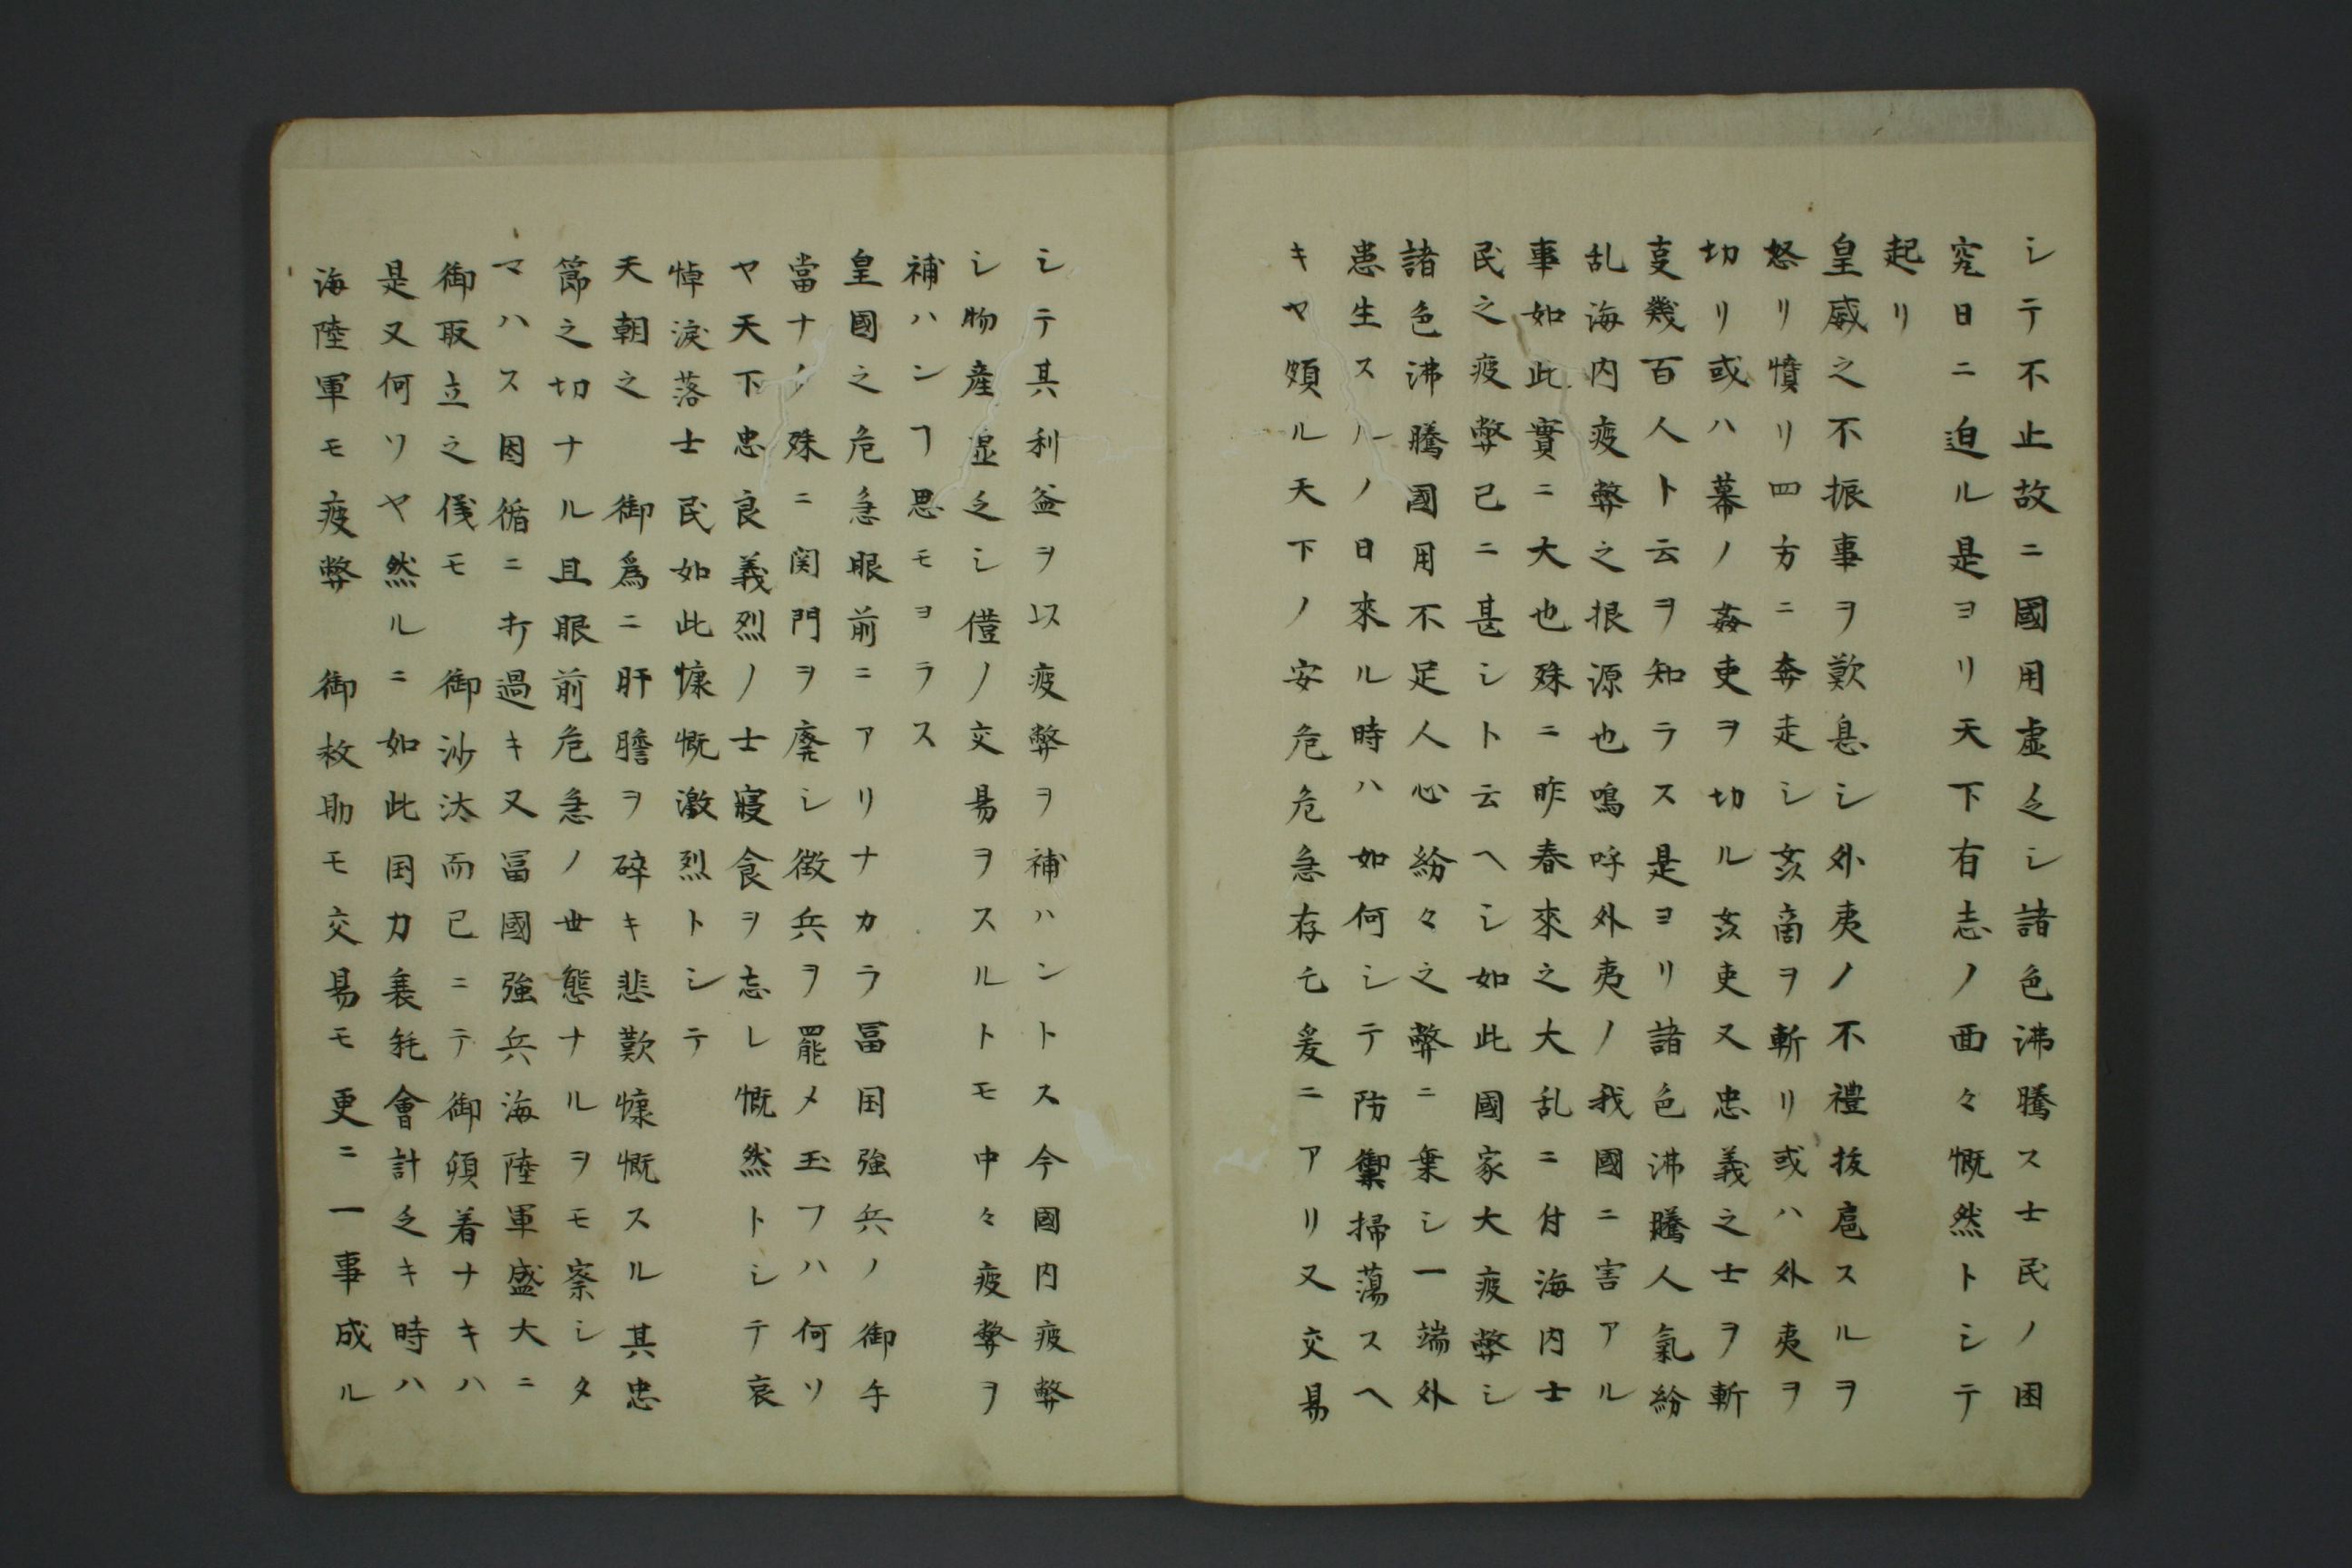 シテ不止故ニ國用虚乏シ諸色沸騰ス士民ノ困
究日ニ迫ル是ヨリ天下有志ノ面々慨然トシテ
起リ
皇威之不振事ヲ歎息シ外夷ノ不禮抜扈スルヲ
怒リ憤リ四方ニ奔走シ亥啇ヲ斬リ或ハ外夷ヲ
切リ或ハ幕ノ姦吏ヲ切ル亥吏又忠義之士ヲ斬
叓幾百人ト云ヲ知ラス是ヨリ諸色沸騰人氣紛
乱海内疲弊之根源也嗚呼外夷ノ我國ニ害アル
事如此實ニ大也殊ニ昨春來之大乱ニ付海内士
民之疲弊己ニ甚シト云ヘシ如此國家大疲弊シ
諸色沸騰國用不足人心紛々之弊ニ棄シ一端外
患生スルノ日來ル時ハ如何シテ防禦掃蕩スヘ
キヤ頗ル天下ノ安危危急存乞爰ニアリ又交易
シテ其利益ヲ以疲弊ヲ補ハントス今國内疲弊
シ物産虚乏シ僅ノ交易ヲスルトモ中々疲弊ヲ
補ハンヿ思モヨラス
皇國之危急眼前ニアリナカラ冨国強兵ノ御手
當ナク殊ニ関門ヲ廃シ徴兵ヲ罷メ玉フハ何ソ
ヤ天下忠良義烈ノ士寝食ヲ忘レ慨然トシテ哀
悼涙落士民如此慷慨激烈トシテ
天朝之 御爲ニ肝膽ヲ碎キ悲歎慷慨スル其忠
節之切ナル且眼前危急ノ世態ナルヲモ察シタ
マハス因循ニ打過キ又冨國強兵海陸軍盛大ニ
御取立之儀モ 御沙汰而已ニテ御頓着ナキハ
是又何ソヤ然ルニ如此国力衰耗會計乏キ時ハ
海陸軍モ疲弊 御救助モ交易モ更ニ一事成ル